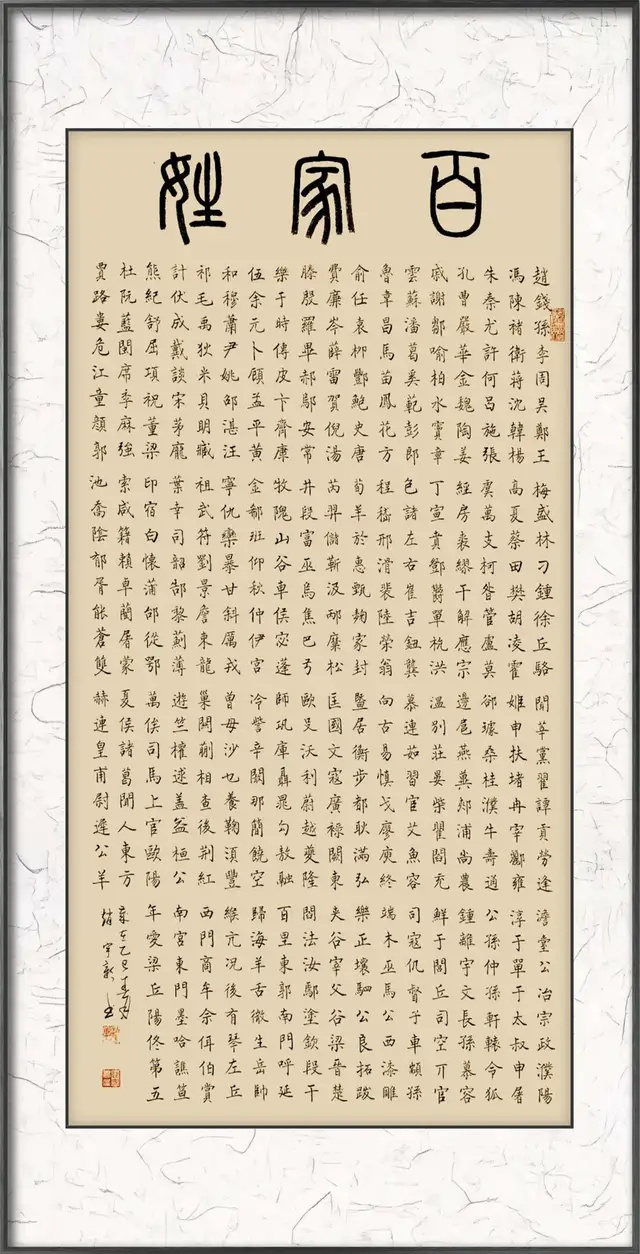 百家姓
趙錢孫李周吳鄭王
馮陳褚衛蔣沈韓楊
朱秦尤許何呂施張
孔曹嚴華金魏陶姜
戚謝鄒喻柏水竇章
雲蘇潘葛奚範彭郎
魯韋昌馬苗鳳花方
俞任袁柳酆鮑史唐
費廉岑薛雷賀倪湯
滕殷羅畢郝鄔安常
樂于時傅皮卞齊康
伍余元卜顧孟平黃
和穆蕭尹姚邵湛汪
祁毛禹狄米貝明臧
計伏成戴談宋茅龐
熊紀舒屈項祝董梁
杜阮藍閔席季麻強
賈路婁危江童顏郭
梅盛林刁鍾徐丘駱
高夏蔡田樊胡凌霍
虞萬支柯昝管盧莫
經房裘繆干解應宗
丁宣賁鄧鬱單杭洪
包諸左右崔吉鈕龔
程嵇邢滑裴陸榮翁
荀羊於惠甄麴家封
芮羿儲靳汲邴糜松
井段富巫烏焦巴弓
牧隗山谷車侯宓蓬
全郗班仰秋仲伊宮
寧仇欒暴甘斜厲戎
祖武符劉景詹束龍
葉幸司韶郜黎薊薄
印宿白懷蒲邰從鄂
索咸籍賴卓藺屠蒙
池喬陰郁胥能蒼雙
聞莘黨翟譚貢勞逄
姬申扶堵冉宰酈雍
郤璩桑桂濮牛壽通
邊扈燕冀郟浦尚農
溫別莊晏柴瞿閻充
慕連茹習宦艾魚容
向古易慎戈廖庾終
暨居衡步都耿滿弘
匡國文寇廣祿闕東
歐殳沃利蔚越夔隆
師鞏庫聶晁勾敖融
冷訾辛闞那簡饒空
曾毋沙乜養鞠須豐
巢關蒯相查後荊紅
遊竺權逑蓋益桓公
萬俟司馬上官歐陽
夏侯諸葛聞人東方
赫連皇甫尉遲公羊
澹臺公冶宗政濮陽
淳于單于太叔申屠
公孫仲孫軒轅令狐
鍾離宇文長孫慕容
鮮于閭丘司空亓官
司寇仉督子車顓孫
端木巫馬公西漆雕
樂正壤駟公良拓跋
夾谷宰父谷梁晉楚
閆法汝鄢塗欽段干
百里東郭南門呼延
歸海羊舌微生岳帥
緱亢況後有琴左丘
西門商牟佘佴伯賞
南宮東門墨哈譙笪
年愛梁丘陽佟第五
歲在乙巳年春月
趙宇新書